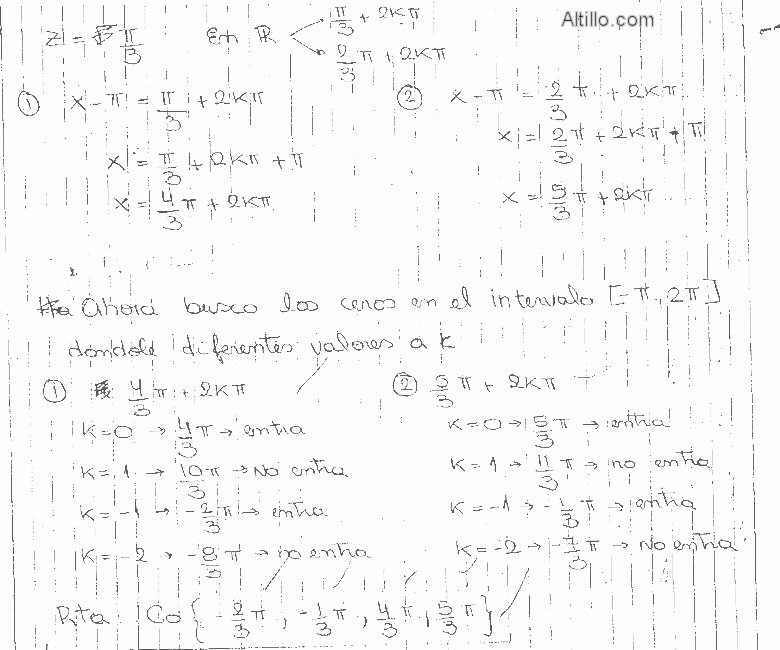 Altillo.com
Z = π/3 En ℝ π/3 + 2kπ
2/3 π + 2kπ
① x - π = π/3 + 2kπ
x = π/3 + 2kπ + π
x = 4/3 π + 2kπ
② x - π = 2/3 π + 2kπ
x = 2/3 π + 2kπ + π
x = 5/3 π + 2kπ
Ahora busco los ceros en el intervalo [-π, 2π]
dándole diferentes valores a k
① 4/3 π + 2kπ
k = 0 → 4/3 π → entra
k = 1 → 10/3 π → No entra
k = -1 → -2/3 π → entra
k = -2 → -8/3 π → no entra
② 5/3 π + 2kπ
k = 0 → 5/3 π → entra
k = 1 → 11/3 π → no entra
k = -1 → -1/3 π → entra
k = -2 → -7/3 π → No entra
Rta: Co { -2/3 π, -1/3 π, 4/3 π, 5/3 π }